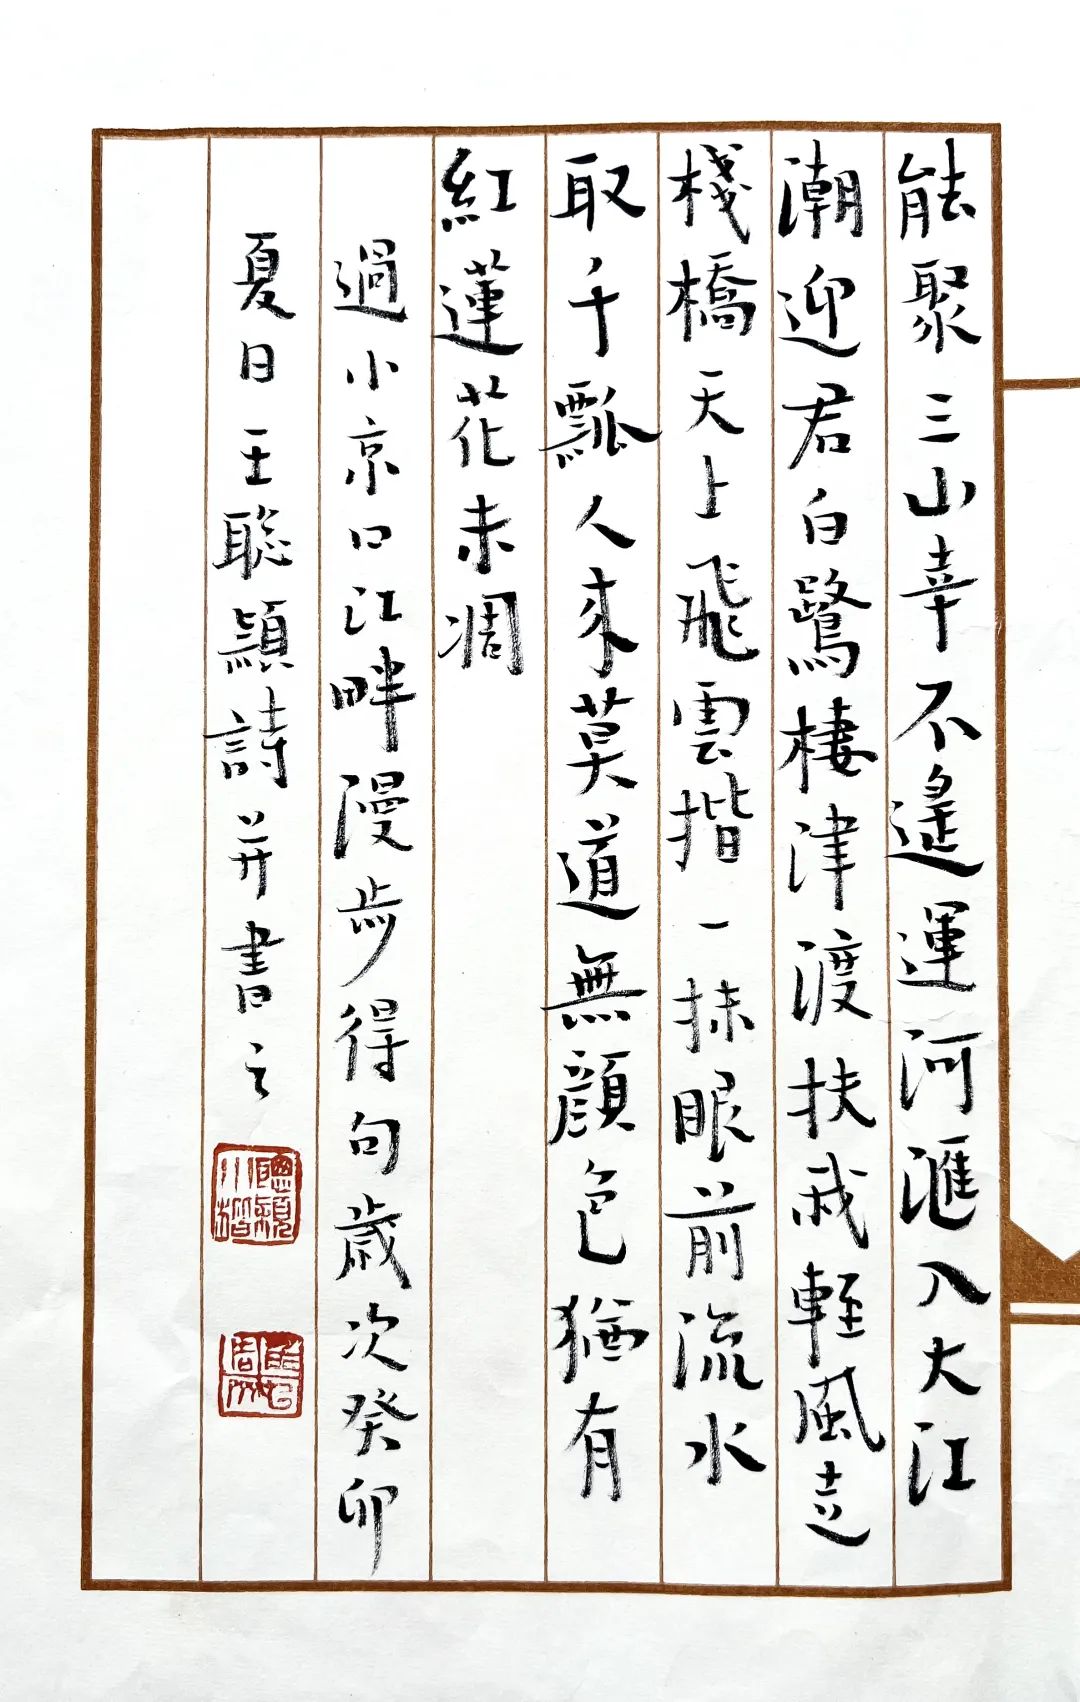 能聚三山幸不遙運河滙入大江
潮迎君白鷺棲津渡扶我輕風立
棧橋天上飛雲揩一抹眼前流水
取千瓢人來莫道無顔色猶有
紅蓮花未凋
過小京口江畔漫步得句歲次癸卯
夏日王聰穎詩并書之